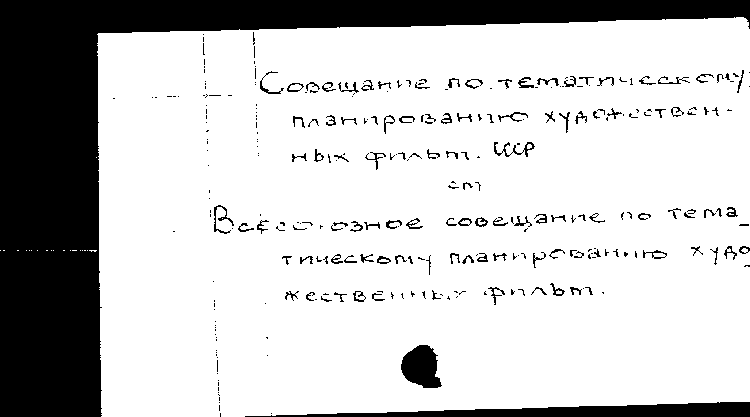 Совещание по тематическому
планированию художествен-
ных фильм. СССР
см
Всесоюзное совещание по тема_
тическому планированию худо
жественных фильм.